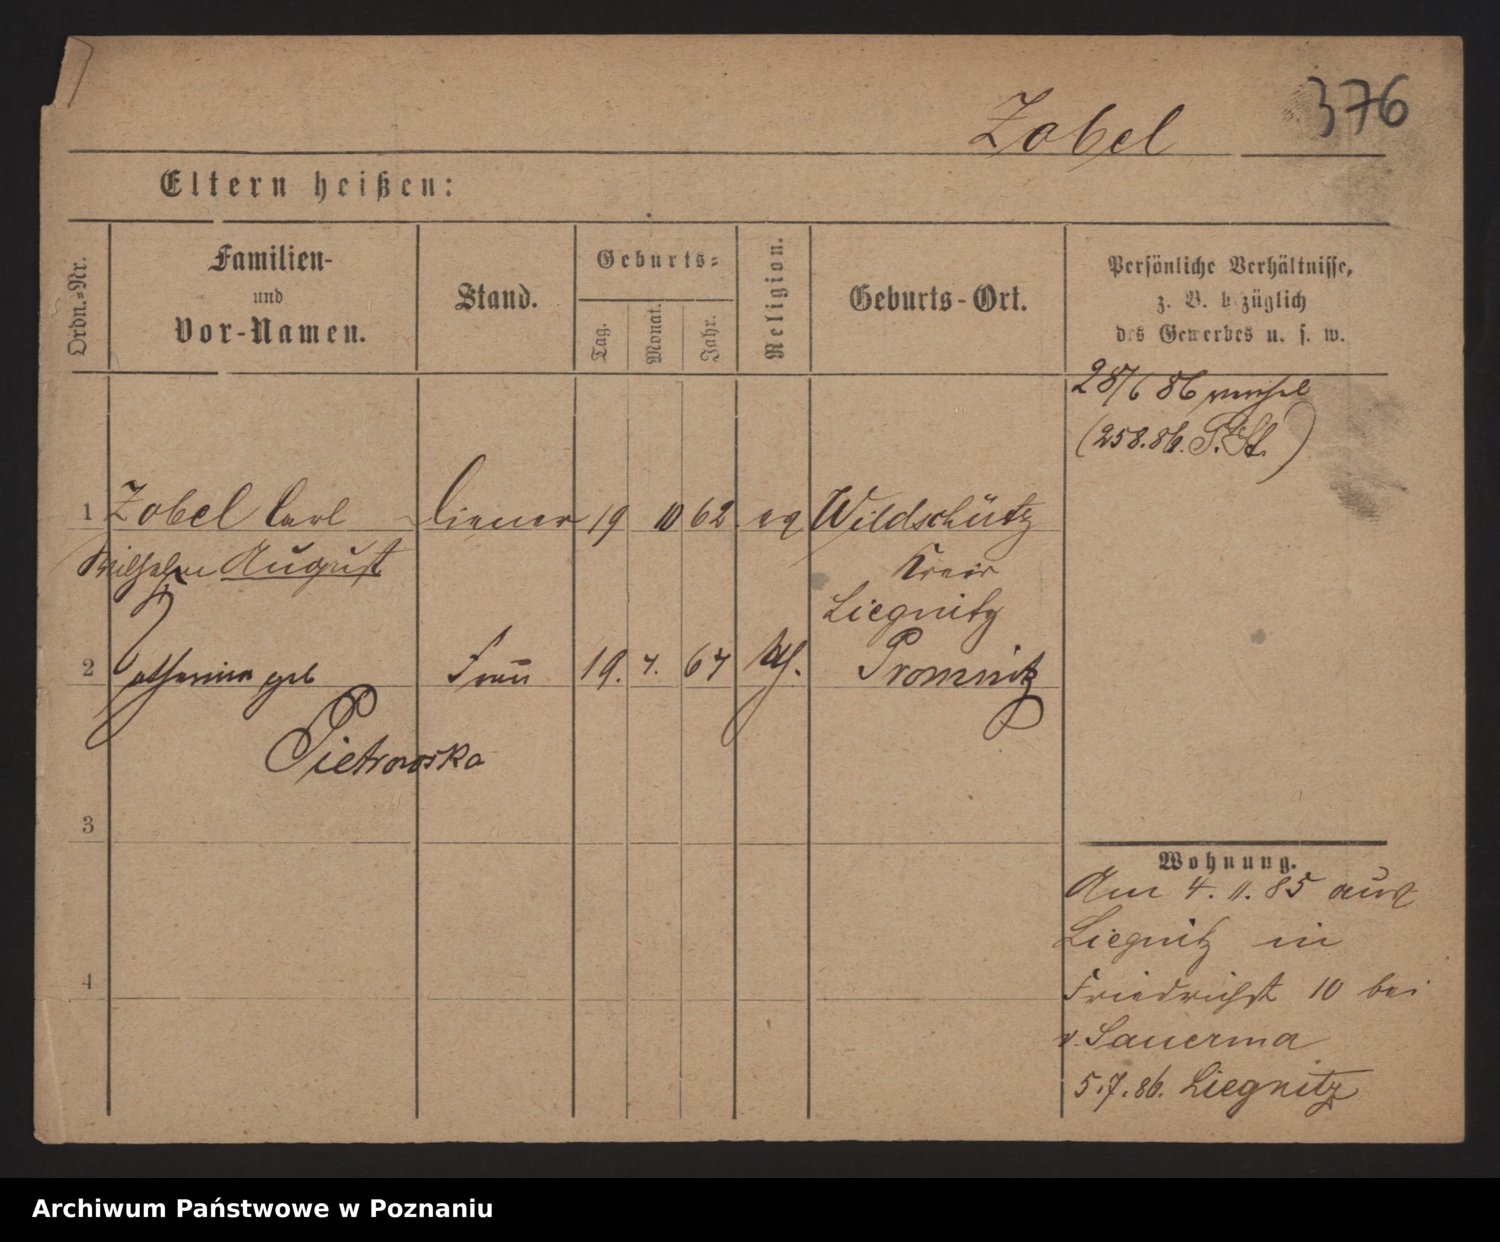 376
Zobel
Eltern heißen:
Ordn.-Nr.
Familien-
und
Vor-Namen.
Stand.
Geburts-
Tag.
Monat.
Jahr.
Religion.
Geburts-Ort.
Persönliche Verhältnisse,
z. B. bezüglich
des Gewerbes u. s. w.
28/6 86
(258.86. P. St.)
1 Zobel Carl Diener 19 10 62 ev Wildschütz
Wilhelm August Kreis
Liegnitz
2 Catharina geb Frau 19. 7. 67 kth. Promnitz
Pietrowska
3
4
Wohnung.
Am 4. 11. 85 aus
Liegnitz in
Friedrichst 10 bei
v. Sauerma
5.7.86. Liegnitz
Archiwum Państwowe w Poznaniu